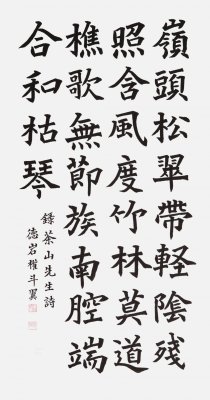 嶺頭松翠帶軽陰殘
照含風度竹林莫道
樵歌無節族南腔端
合和枯琴
錄茶山先生詩
德岩權斗翼